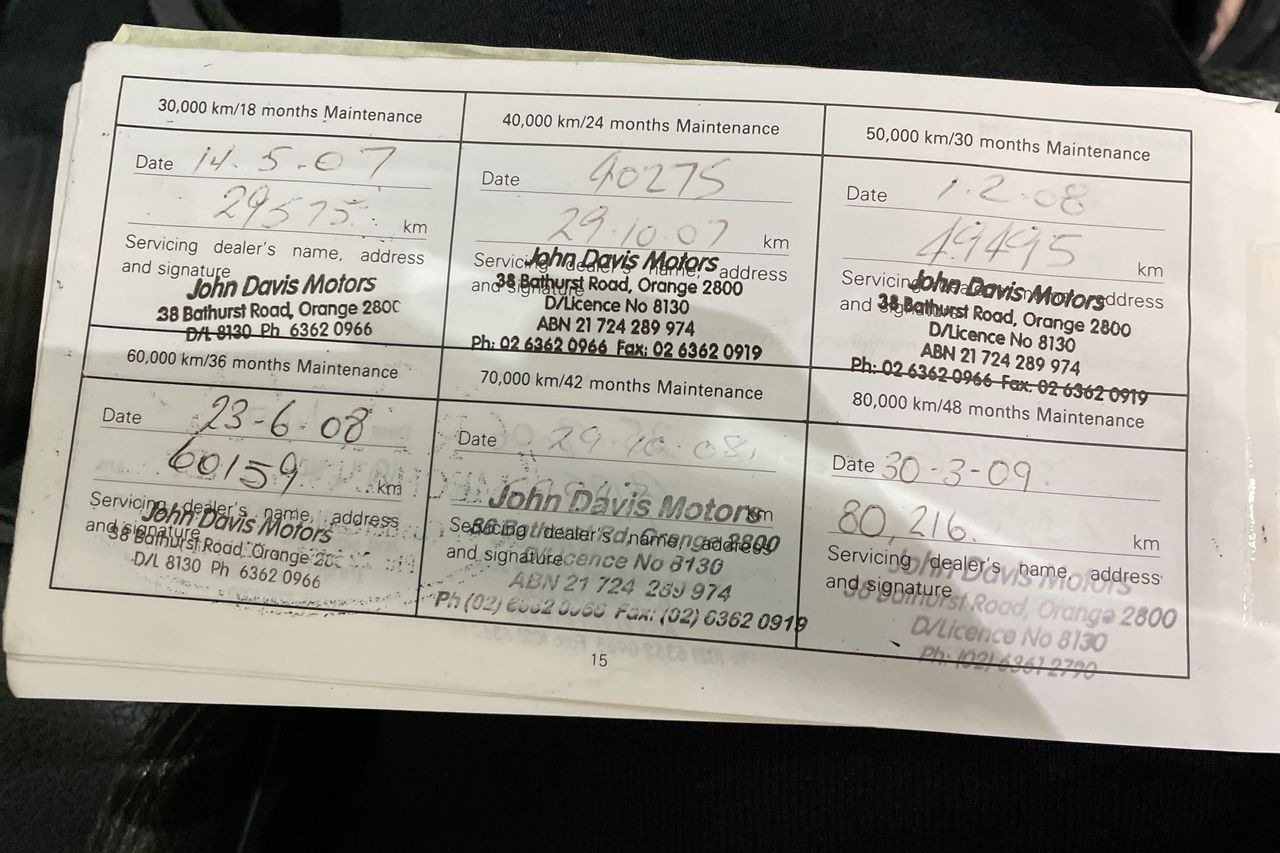 30,000 km/18 months Maintenance
Date 14.5.07
29575 km
Servicing dealer's name, address
and signature
John Davis Motors
38 Bathurst Road, Orange 2800
D/L 8130 Ph 6362 0966
40,000 km/24 months Maintenance
Date 40275
29.10.07 km
Servicing dealer's name, address
and signature
John Davis Motors
38 Bathurst Road, Orange 2800
D/Licence No 8130
ABN 21 724 289 974
Ph: 02 6362 0966 Fax: 02 6362 0919
50,000 km/30 months Maintenance
Date 1.2.08
49495 km
Servicing address
and signature
John Davis Motors
38 Bathurst Road, Orange 2800
D/Licence No 8130
ABN 21 724 289 974
Ph: 02 6362 0966 Fax: 02 6362 0919
60,000 km/36 months Maintenance
Date 23-6-08
60159 km
Servicing dealer's name, address
and signature
John Davis Motors
38 Bathurst Road, Orange
D/L 8130 Ph 6362 0966
70,000 km/42 months Maintenance
Date 29.10.08
km
Servicing dealer's name, address
and signature
John Davis Motors
38 Bathurst Rd, Orange 2800
D/Licence No 8130
ABN 21 724 289 974
Ph (02) 6362 0966 Fax: (02) 6362 0919
80,000 km/48 months Maintenance
Date 30-3-09
80,216. km
Servicing dealer's name, address
and signature
John Davis Motors
38 Bathurst Road, Orange 2800
D/Licence No 8130
Ph: (02) 6361 2790
15